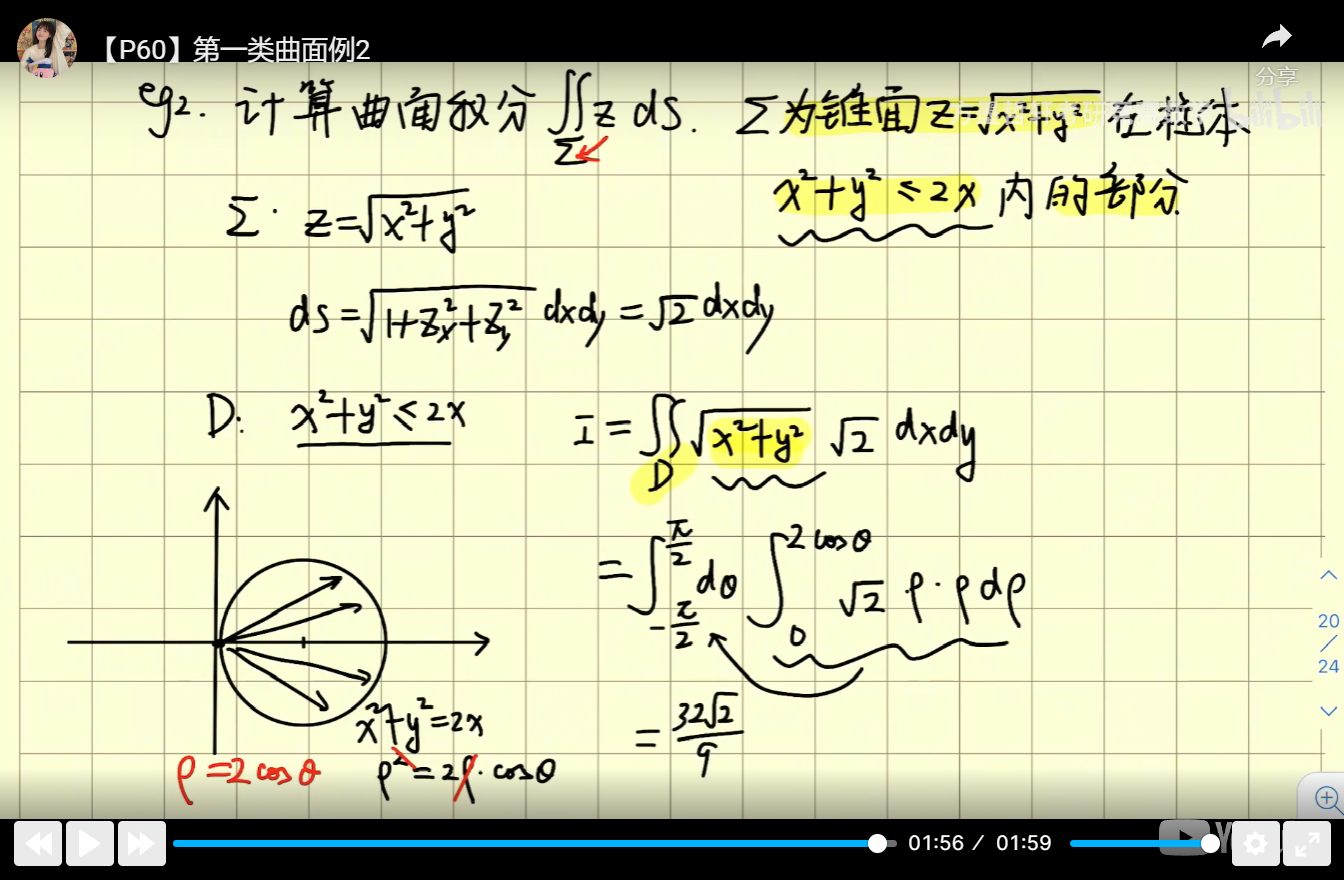 【P60】第一类曲面例2
分享
eg2. 计算曲面积分 ∬_Σ z ds. Σ为锥面 z=√(x²+y²) 在柱体
x²+y² ≤ 2x 内的部分
Σ: z=√(x²+y²)
ds=√(1+z_x²+z_y²) dxdy = √2 dxdy
D: x²+y² ≤ 2x
I = ∬_D √(x²+y²) √2 dxdy
= ∫_{-π/2}^{π/2} dθ ∫_0^{2cosθ} √2 ρ·ρ dρ
= 32√2/9
x²+y²=2x
ρ=2cosθ
ρ²=2ρ·cosθ
20
/
24
01:56 / 01:59
bilibili